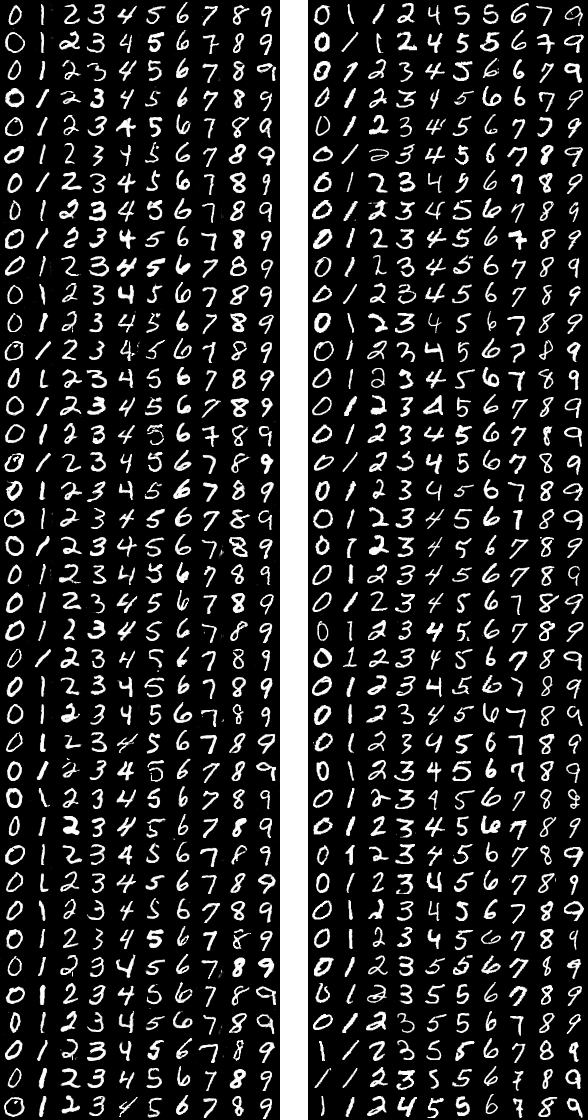 0 1 2 3 4 5 6 7 8 9
0 1 2 3 4 5 6 7 8 9
0 1 2 3 4 5 6 7 8 9
0 1 2 3 4 5 6 7 8 9
0 1 2 3 4 5 6 7 8 9
0 1 2 3 4 5 6 7 8 9
0 1 2 3 4 5 6 7 8 9
0 1 2 3 4 5 6 7 8 9
0 1 2 3 4 5 6 7 8 9
0 1 2 3 4 5 6 7 8 9
0 1 2 3 4 5 6 7 8 9
0 1 2 3 4 5 6 7 8 9
0 1 2 3 4 5 6 7 8 9
0 1 2 3 4 5 6 7 8 9
0 1 2 3 4 5 6 7 8 9
0 1 2 3 4 5 6 7 8 9
0 1 2 3 4 5 6 7 8 9
0 1 2 3 4 5 6 7 8 9
0 1 2 3 4 5 6 7 8 9
0 1 2 3 4 5 6 7 8 9
0 1 2 3 4 5 6 7 8 9
0 1 2 3 4 5 6 7 8 9
0 1 2 3 4 5 6 7 8 9
0 1 2 3 4 5 6 7 8 9
0 1 2 3 4 5 6 7 8 9
0 1 2 3 4 5 6 7 8 9
0 1 2 3 4 5 6 7 8 9
0 1 2 3 4 5 6 7 8 9
0 1 2 3 4 5 6 7 8 9
0 1 2 3 4 5 6 7 8 9
0 1 2 3 4 5 6 7 8 9
0 1 2 3 4 5 6 7 8 9
0 1 2 3 4 5 6 7 8 9
0 1 2 3 4 5 6 7 8 9
0 1 2 3 4 5 6 7 8 9
0 1 2 3 4 5 6 7 8 9
0 1 2 3 4 5 6 7 8 9
0 1 2 3 4 5 6 7 8 9
0 1 2 3 4 5 6 7 8 9
0 1 2 3 4 5 6 7 8 9
0 1 1 2 4 5 5 6 7 9
0 1 1 2 4 5 5 6 7 9
0 1 2 3 4 5 6 6 7 9
0 1 2 3 4 5 6 6 7 9
0 1 2 3 4 5 6 7 7 9
0 1 2 3 4 5 6 7 8 9
0 1 2 3 4 5 6 7 8 9
0 1 2 3 4 5 6 7 8 9
0 1 2 3 4 5 6 7 8 9
0 1 2 3 4 5 6 7 8 9
0 1 2 3 4 5 6 7 8 9
0 1 2 3 4 5 6 7 8 9
0 1 2 3 4 5 6 7 8 9
0 1 2 3 4 5 6 7 8 9
0 1 2 3 4 5 6 7 8 9
0 1 2 3 4 5 6 7 8 9
0 1 2 3 4 5 6 7 8 9
0 1 2 3 4 5 6 7 8 9
0 1 2 3 4 5 6 7 8 9
0 1 2 3 4 5 6 7 8 9
0 1 2 3 4 5 6 7 8 9
0 1 2 3 4 5 6 7 8 9
0 1 2 3 4 5 6 7 8 9
0 1 2 3 4 5 6 7 8 9
0 1 2 3 4 5 6 7 8 9
0 1 2 3 4 5 6 7 8 9
0 1 2 3 4 5 6 7 8 9
0 1 2 3 4 5 6 7 8 9
0 1 2 3 4 5 6 7 8 8
0 1 2 3 4 5 6 7 8 9
0 1 2 3 4 5 6 7 8 9
0 1 2 3 4 5 6 7 8 9
0 1 2 3 4 5 6 7 8 9
0 1 2 3 4 5 6 7 8 9
0 1 2 3 5 5 6 7 8 9
0 1 2 3 5 5 6 7 8 9
0 1 2 3 5 5 6 7 8 9
1 1 2 3 5 5 6 7 8 9
1 1 2 3 5 5 6 7 8 9
1 1 2 4 5 5 6 7 8 9